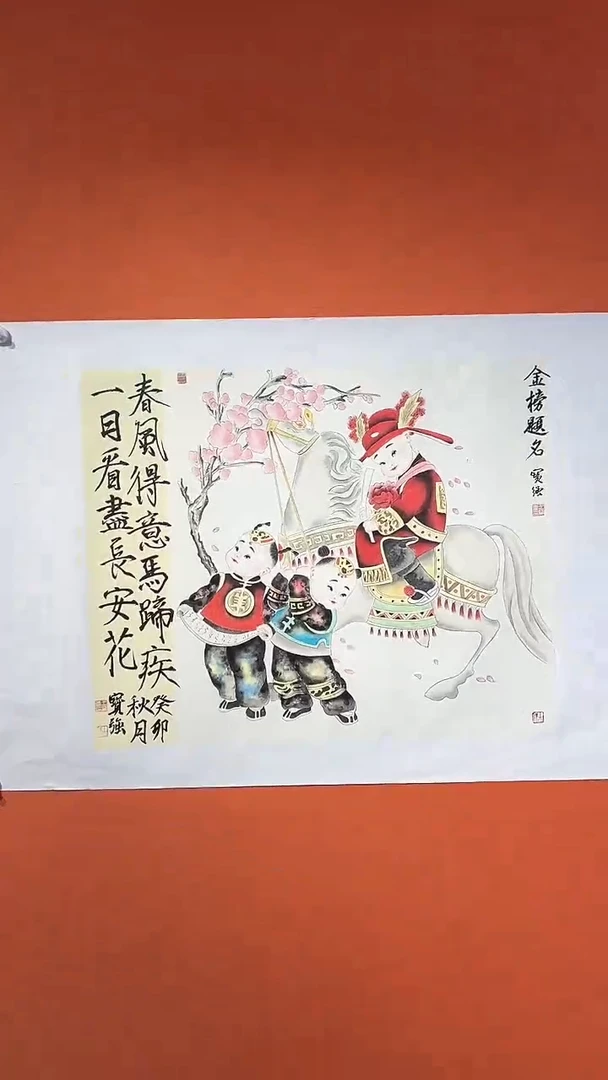 金榜題名
寶強
春風得意馬蹄疾
一日看盡長安花
癸卯
秋月
寶強